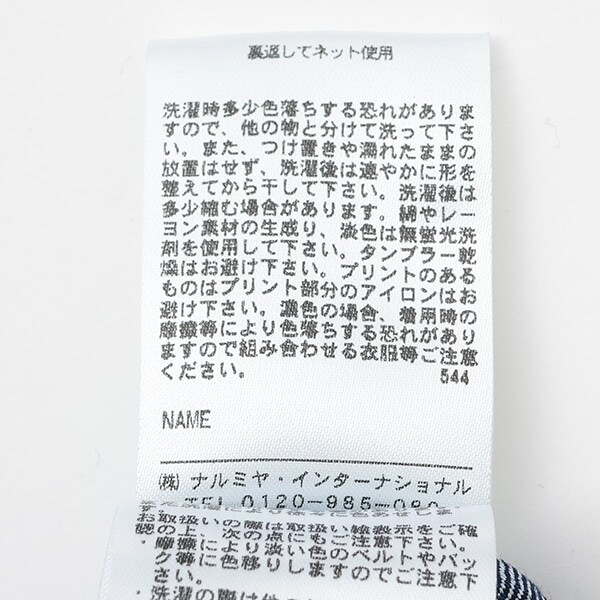 裏返してネット使用
洗濯時多少色落ちする恐れがありま
すので、他の物と分けて洗って下さ
い。また、つけ置きや濡れたままの
放置はせず、洗濯後は速やかに形を
整えてから干して下さい。洗濯後は
多少縮む場合があります。綿やレー
ヨン素材の生成り、淡色は無蛍光洗
剤を使用して下さい。タンブラー乾
燥はお避け下さい。プリントのある
ものはプリント部分のアイロンはお
避け下さい。濃色の場合、着用時の
摩擦等により色落ちする恐れがあり
ますので組み合わせる衣服等ご注意
ください。 544
NAME
(株) ナルミヤ・インターナショナル
TEL 0120-985-080
お取扱いの際は取扱い絵表示をご確
認の上、次の点にもご注意下さい。
・摩擦により淡い色のベルトやバッ
グ等に色移りしますのでご注意下
さい。
・洗濯の際は他